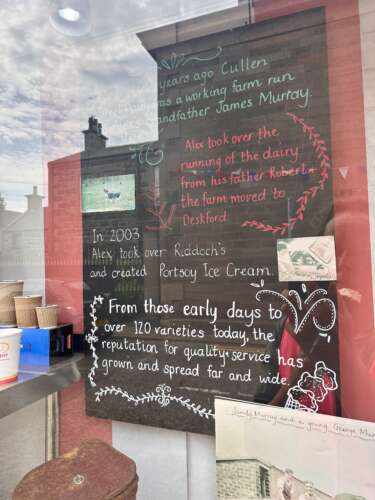 years ago Cullen
was a working farm run
andfather James Murray.
Alex took over the
running of the dairy
from his father Robert &
the farm moved to
Deskford
In 2003
Alex took over Riddoch's
and created Portsoy Ice Cream.
From those early days to
over 120 varieties today, the
reputation for quality & service has
grown and spread far and wide.
Sandy Murray and a young George Mur